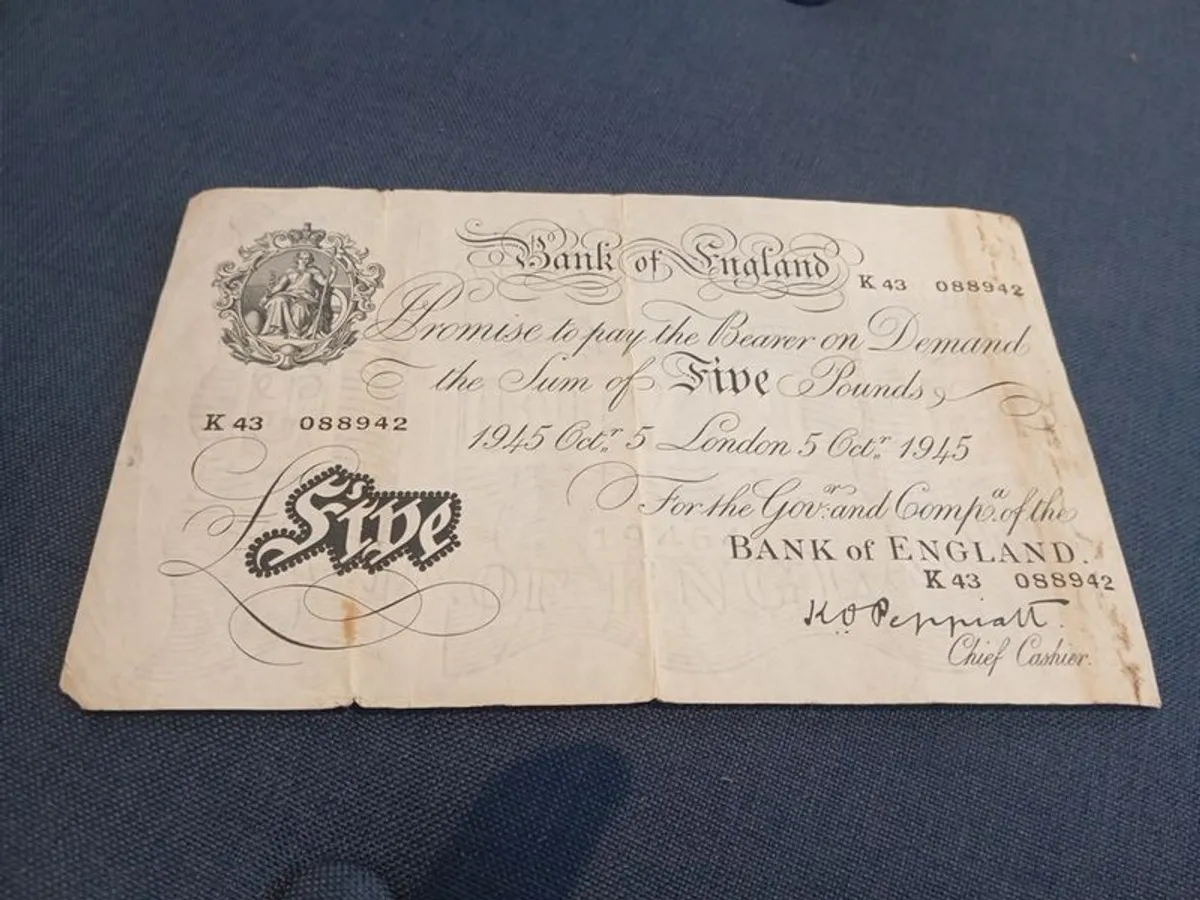 Bank of England
K 43 088942
I Promise to pay the Bearer on Demand
the Sum of Five Pounds
K 43 088942
1945 Octr. 5 London 5 Octr. 1945
£ Five
For the Govr. and Compa. of the
BANK of ENGLAND.
K 43 088942
K.O. Peppiatt.
Chief Cashier.